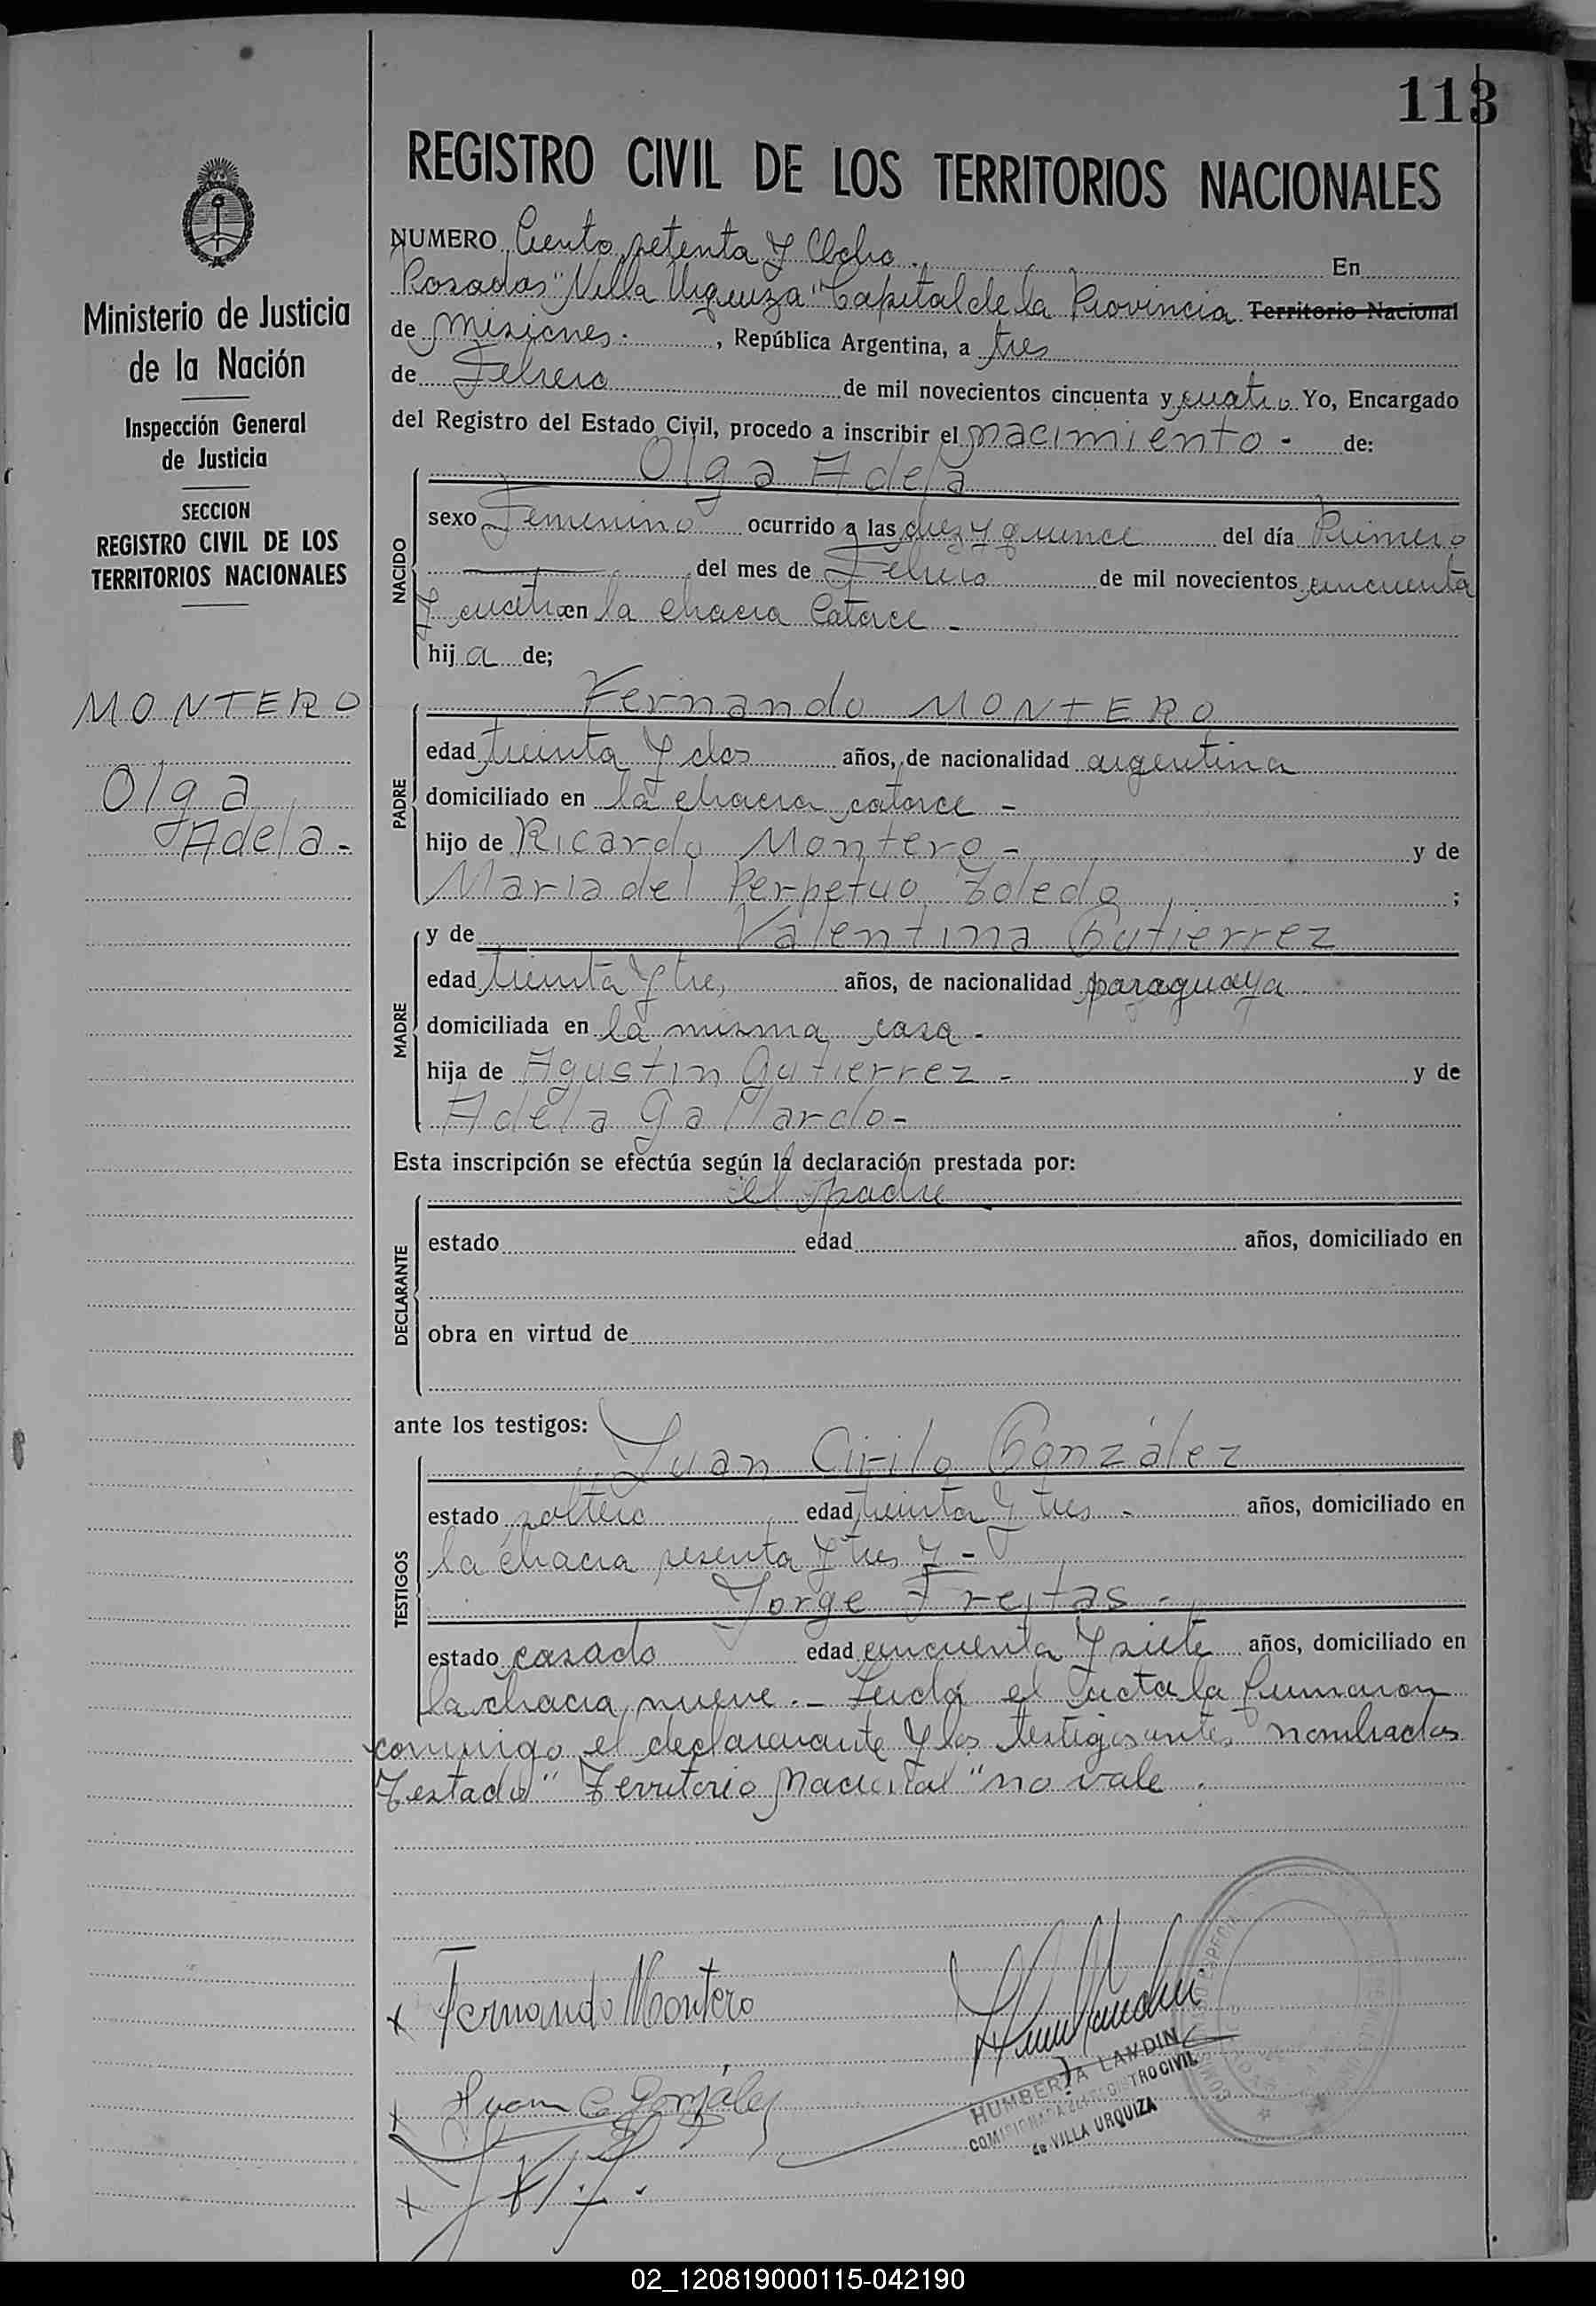 113
REGISTRO CIVIL DE LOS TERRITORIOS NACIONALES
Ministerio de Justicia
de la Nación
Inspección General
de Justicia
SECCION
REGISTRO CIVIL DE LOS
TERRITORIOS NACIONALES
MONTERO
Olga
Adela-
NUMERO Ciento setenta y Ocho. En
Posadas "Villa Urquiza" Capital de la Provincia Territorio Nacional
de Misiones. , República Argentina, a tres
de Febrero de mil novecientos cincuenta y cuatro Yo, Encargado
del Registro del Estado Civil, procedo a inscribir el nacimiento - de:
Olga Adela
NACIDO
sexo Femenino ocurrido a las diez y quince del día Primero
del mes de Febrero de mil novecientos cincuenta
y cuatro en la chacra Catorce -
hij a de;
Fernando MONTERO
PADRE
edad treinta y dos años, de nacionalidad argentina
domiciliado en la chacra catorce -
hijo de Ricardo Montero - y de
Maria del Perpetuo Toledo ;
y de Valentina Gutierrez
MADRE
edad treinta y tres años, de nacionalidad paraguaya.
domiciliada en la misma casa -
hija de Agustin Gutierrez - y de
Adela Gallardo-
Esta inscripción se efectúa según la declaración prestada por:
el padre
DECLARANTE
estado edad años, domiciliado en
obra en virtud de
ante los testigos:
Juan Cirilo González
TESTIGOS
estado soltero edad treinta y tres - años, domiciliado en
la chacra sesenta y tres y -
Jorge Freitas -
estado casado edad cincuenta y siete años, domiciliado en
la chacra nueve. - Leida el acta la firmaron
conmigo el declarante y los testigos antes nombrados
Testado "Territorio Nacional" no vale.
x Fernando Montero
x Juan C González
x
HUMBERTA LANDIN
COMISIONADA DEL REGISTRO CIVIL
de VILLA URQUIZA
02_120819000115-042190